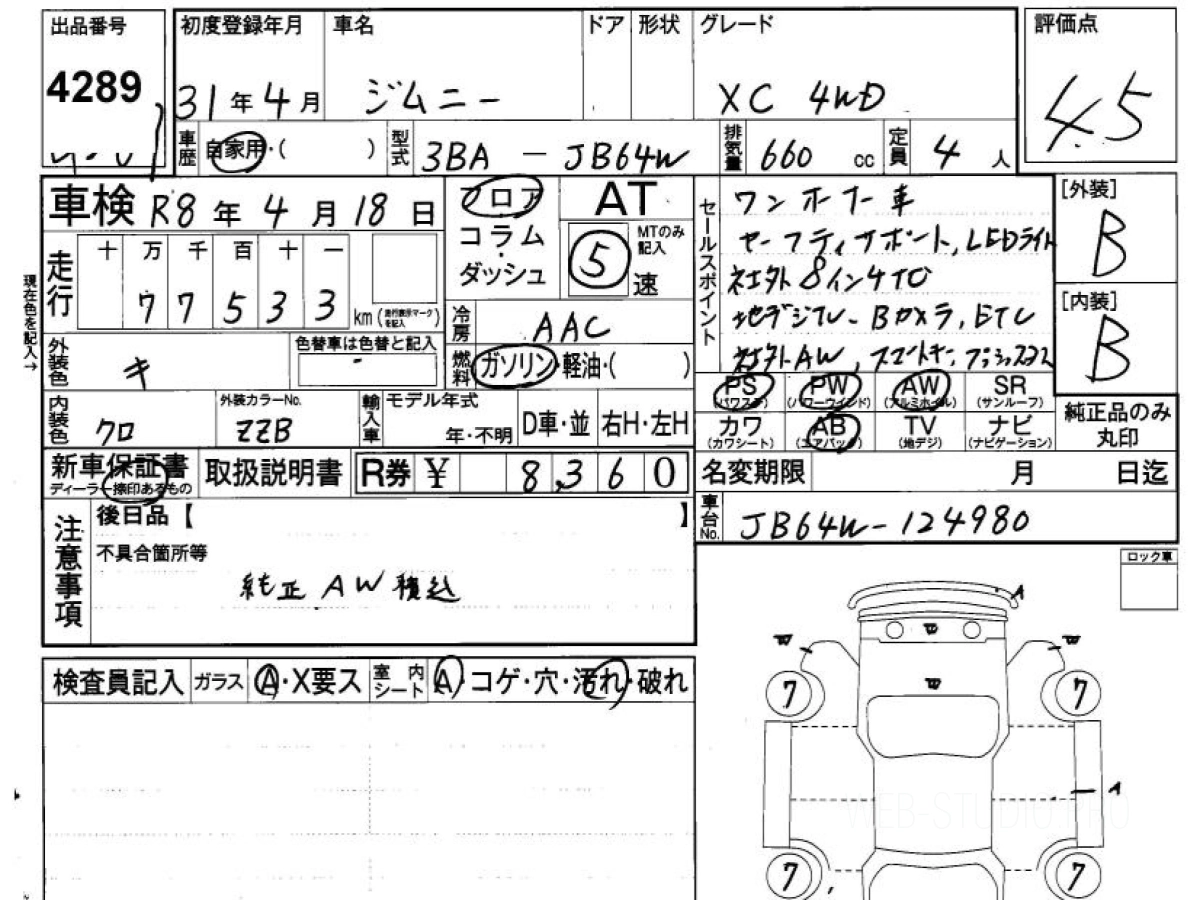 出品番号 初度登録年月 車名 ドア 形状 グレード 評価点
4289 31年4月 ジムニー XC 4WD 4.5
車歴 自家用・( ) 型式 3BA-JB64W 排気量 660 cc 定員 4 人
車検 R8年4月18日 フロア AT セールスポイント ワンオーナー車 [外装]
コラム MTのみ記入 セーフティサポート, LEDライト B
走行 十 万 千 百 十 一 ダッシュ 5 速 社外8インチTV
7 7 5 3 3 km (走行表示マークを記入) 地デジTV-Bカメラ, ETC [内装]
現在色を記入→
冷房 AAC 社外AW, スマートキー, プッシュスタート B
外装色 キ 色替車は色替と記入 - 燃料 ガソリン・軽油・( )
PS (パワステ) PW (パワーウインド) AW (アルミホイル) SR (サンルーフ)
内装色 クロ 外装カラーNo. ZZB 輸入車 モデル年式 年・不明 D車・並 右H・左H
カワ (カワシート) AB (エアバック) TV (地デジ) ナビ (ナビゲーション) 純正品のみ丸印
新車保証書 ディーラー捺印あるもの 取扱説明書 R券 ¥ 8,360 名変期限 月 日迄
注意事項 後日品【 】 車台No. JB64W-124980
不具合箇所等 ロック車
純正AW積込
A
W W W
W
検査員記入 ガラス A・X要ス 室内シート A・コゲ・穴・汚れ・破れ
7 7
A
WEB-STUDIO.PRO
7 7